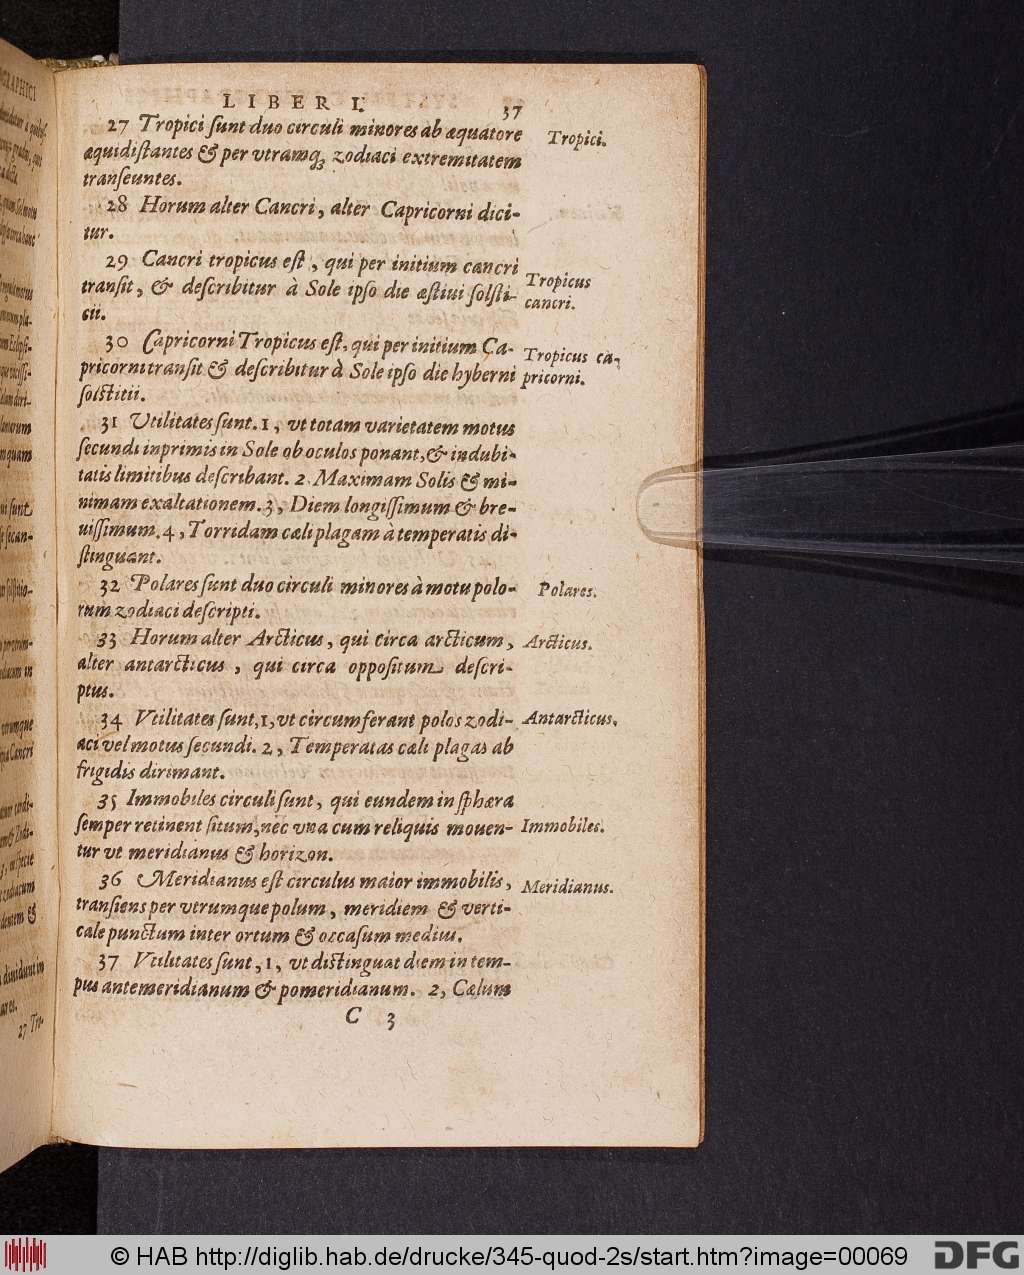 LIBER I.
37
27 Tropici ſunt duo circuli minores ab æquatore
æquidiſtantes & per vtramq; zodiaci extremitatem
tranſeuntes.
Tropici.
28 Horum alter Cancri, alter Capricorni dici-
tur.
29 Cancri tropicus eſt, qui per initium cancri
tranſit, & deſcribitur à Sole ipſo die æſtiui ſolſti-
cii.
Tropicus
cancri.
30 Capricorni Tropicus eſt, qui per initium Ca-
pricorni tranſit & deſcribitur à Sole ipſo die hyberni
ſolſtitii.
Tropicus ca-
pricorni.
31 Utilitates ſunt. 1, vt totam varietatem motus
ſecundi inprimis in Sole ob oculos ponant, & indubi-
tatis limitibus deſcribant. 2. Maximam Solis & mi-
nimam exaltationem. 3, Diem longiſſimum & bre-
uiſſimum. 4, Torridam cæli plagam à temperatis di-
ſtinguant.
32 Polares ſunt duo circuli minores à motu polo-
rum zodiaci deſcripti.
Polares.
33 Horum alter Arcticus, qui circa arcticum,
alter antarcticus, qui circa oppoſitum deſcri-
ptus.
Arcticus.
34 Vtilitates ſunt, 1, vt circumferant polos zodi-
aci vel motus ſecundi. 2, Temperatas cæli plagas ab
frigidis dirimant.
Antarcticus.
35 Immobiles circuli ſunt, qui eundem in ſphæra
ſemper retinent ſitum, nec vna cum reliquis mouen-
tur vt meridianus & horizon.
Immobiles.
36 Meridianus eſt circulus maior immobilis,
tranſiens per vtrumque polum, meridiem & verti-
cale punctum inter ortum & occaſum medium.
Meridianus.
37 Vtilitates ſunt, 1, vt diſtinguat diem in tem-
pus antemeridianum & pomeridianum. 2, Cælum
C 3
© HAB http://diglib.hab.de/drucke/345-quod-2s/start.htm?image=00069
DFG